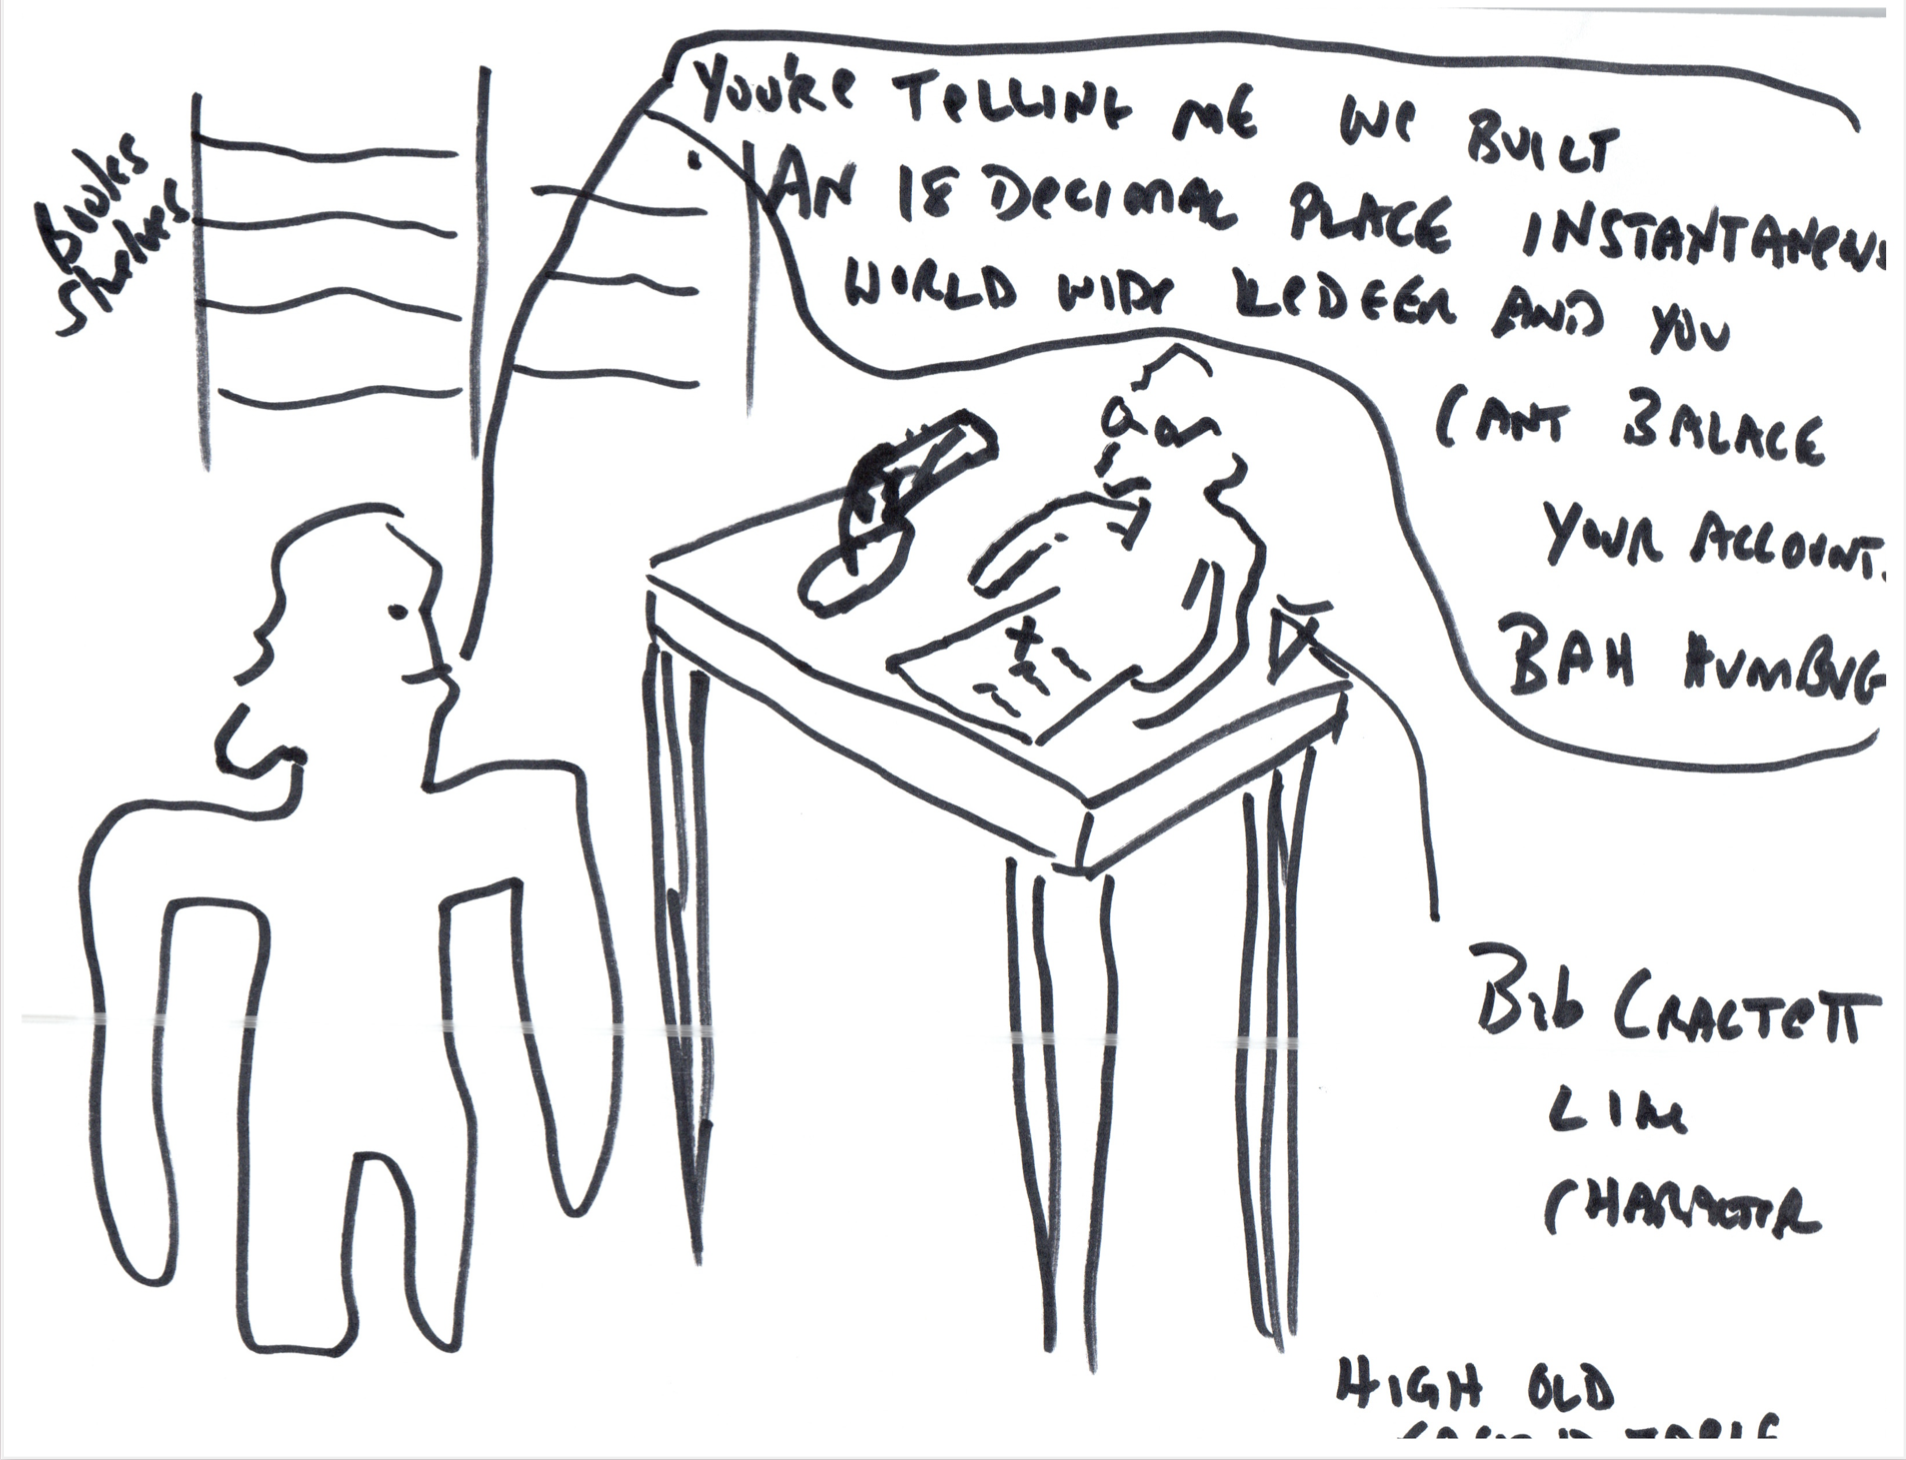 Books
Shelves
YOU'RE TELLING ME WE BUILT
AN 18 DECIMAL PLACE INSTANTANEOUS
WORLD WIDE LEDEER AND YOU
CANT BALACE
YOUR ACCOUNT.
BAH HUMBUG
Bib CRACTETT
LIKE
CHARACTER
HIGH OLD
TABLE